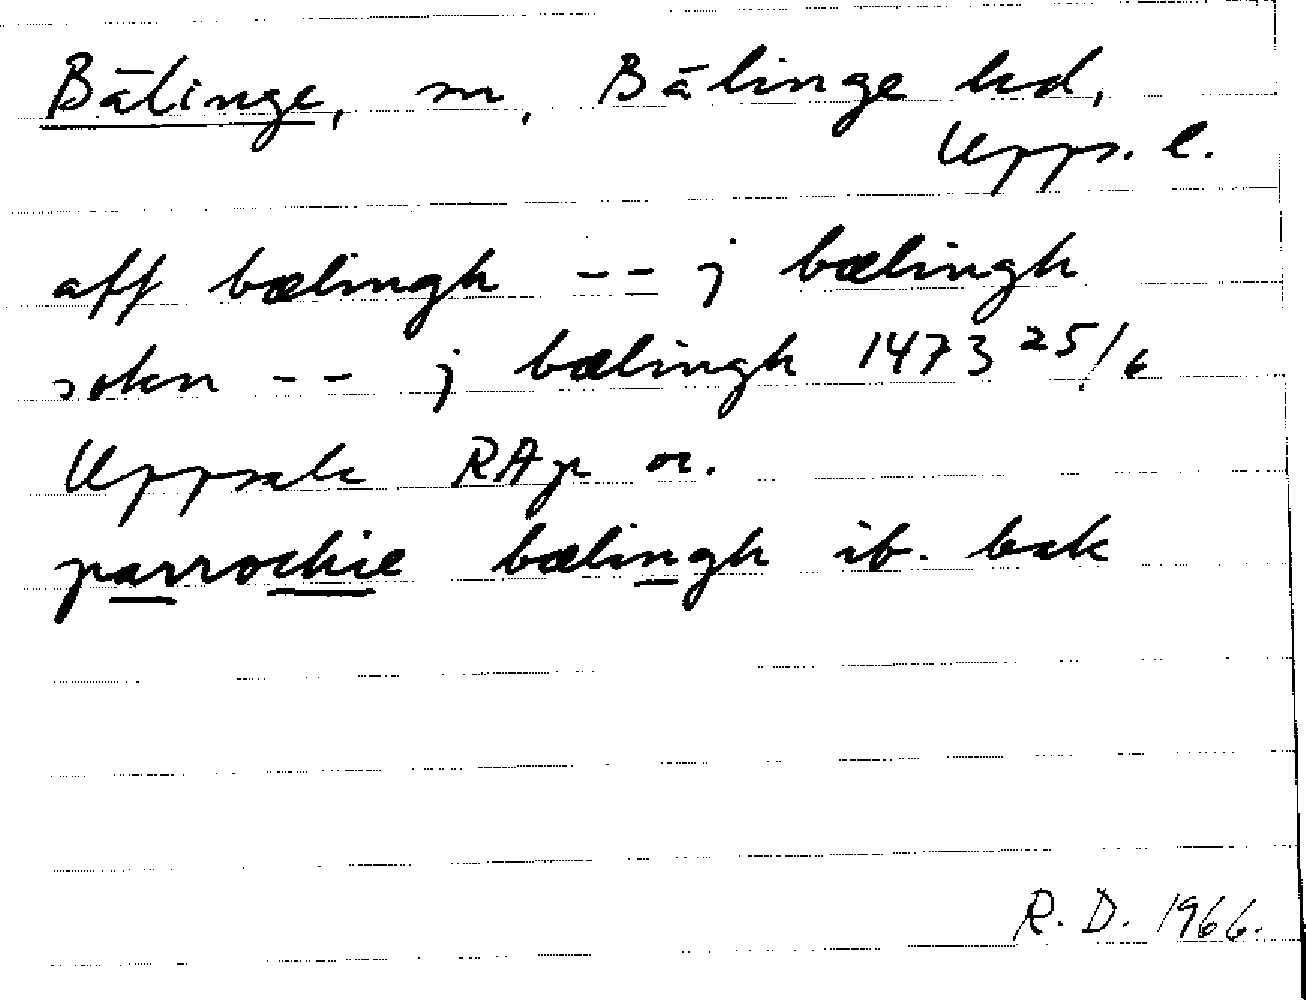 Bälinge, sn, Bälinge hd,
Upps. l.
aff bælingh -- j bælingh
sokn -- j bælingh 1473 25/6
Uppsala RAp or.
parrochie bælingh ib. bak
R. D. 1966.